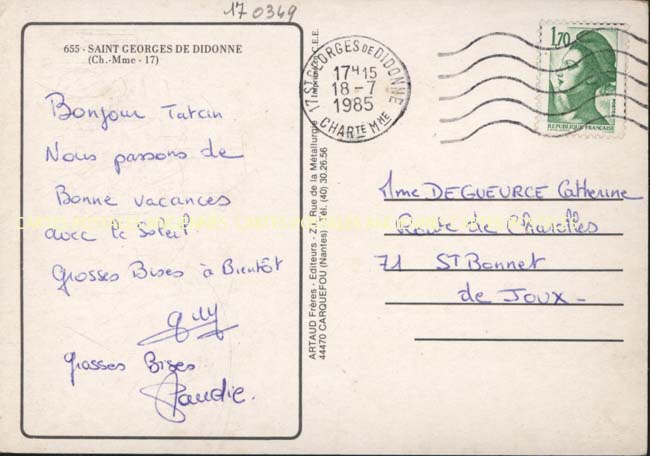 17 0349
655 - SAINT GEORGES DE DIDONNE
(Ch.-Mme - 17)
Bonjour Tatain
Nous passons de
Bonne vacances
avec le Soleil
Grosses Bises à Bientôt
Guy
Grosses Bises
ARTAUD Frères - Editeurs - Z.I. Rue de la Métallurgie
44470 CARQUEFOU (Nantes) - Tél. (40) 30.26.56
Imprimé C.E.E.
17 ST GEORGES DE DIDONNE
17H15
18-7
1985
CHARTE MME
1,70
REPUBLIQUE FRANÇAISE
Mme DEGUEURCE Catherine
Route de Charolles
71 St Bonnet
de Joux -